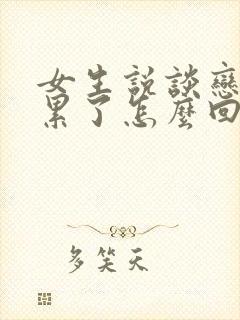 女生說談戀
累了怎麼回
多笑天